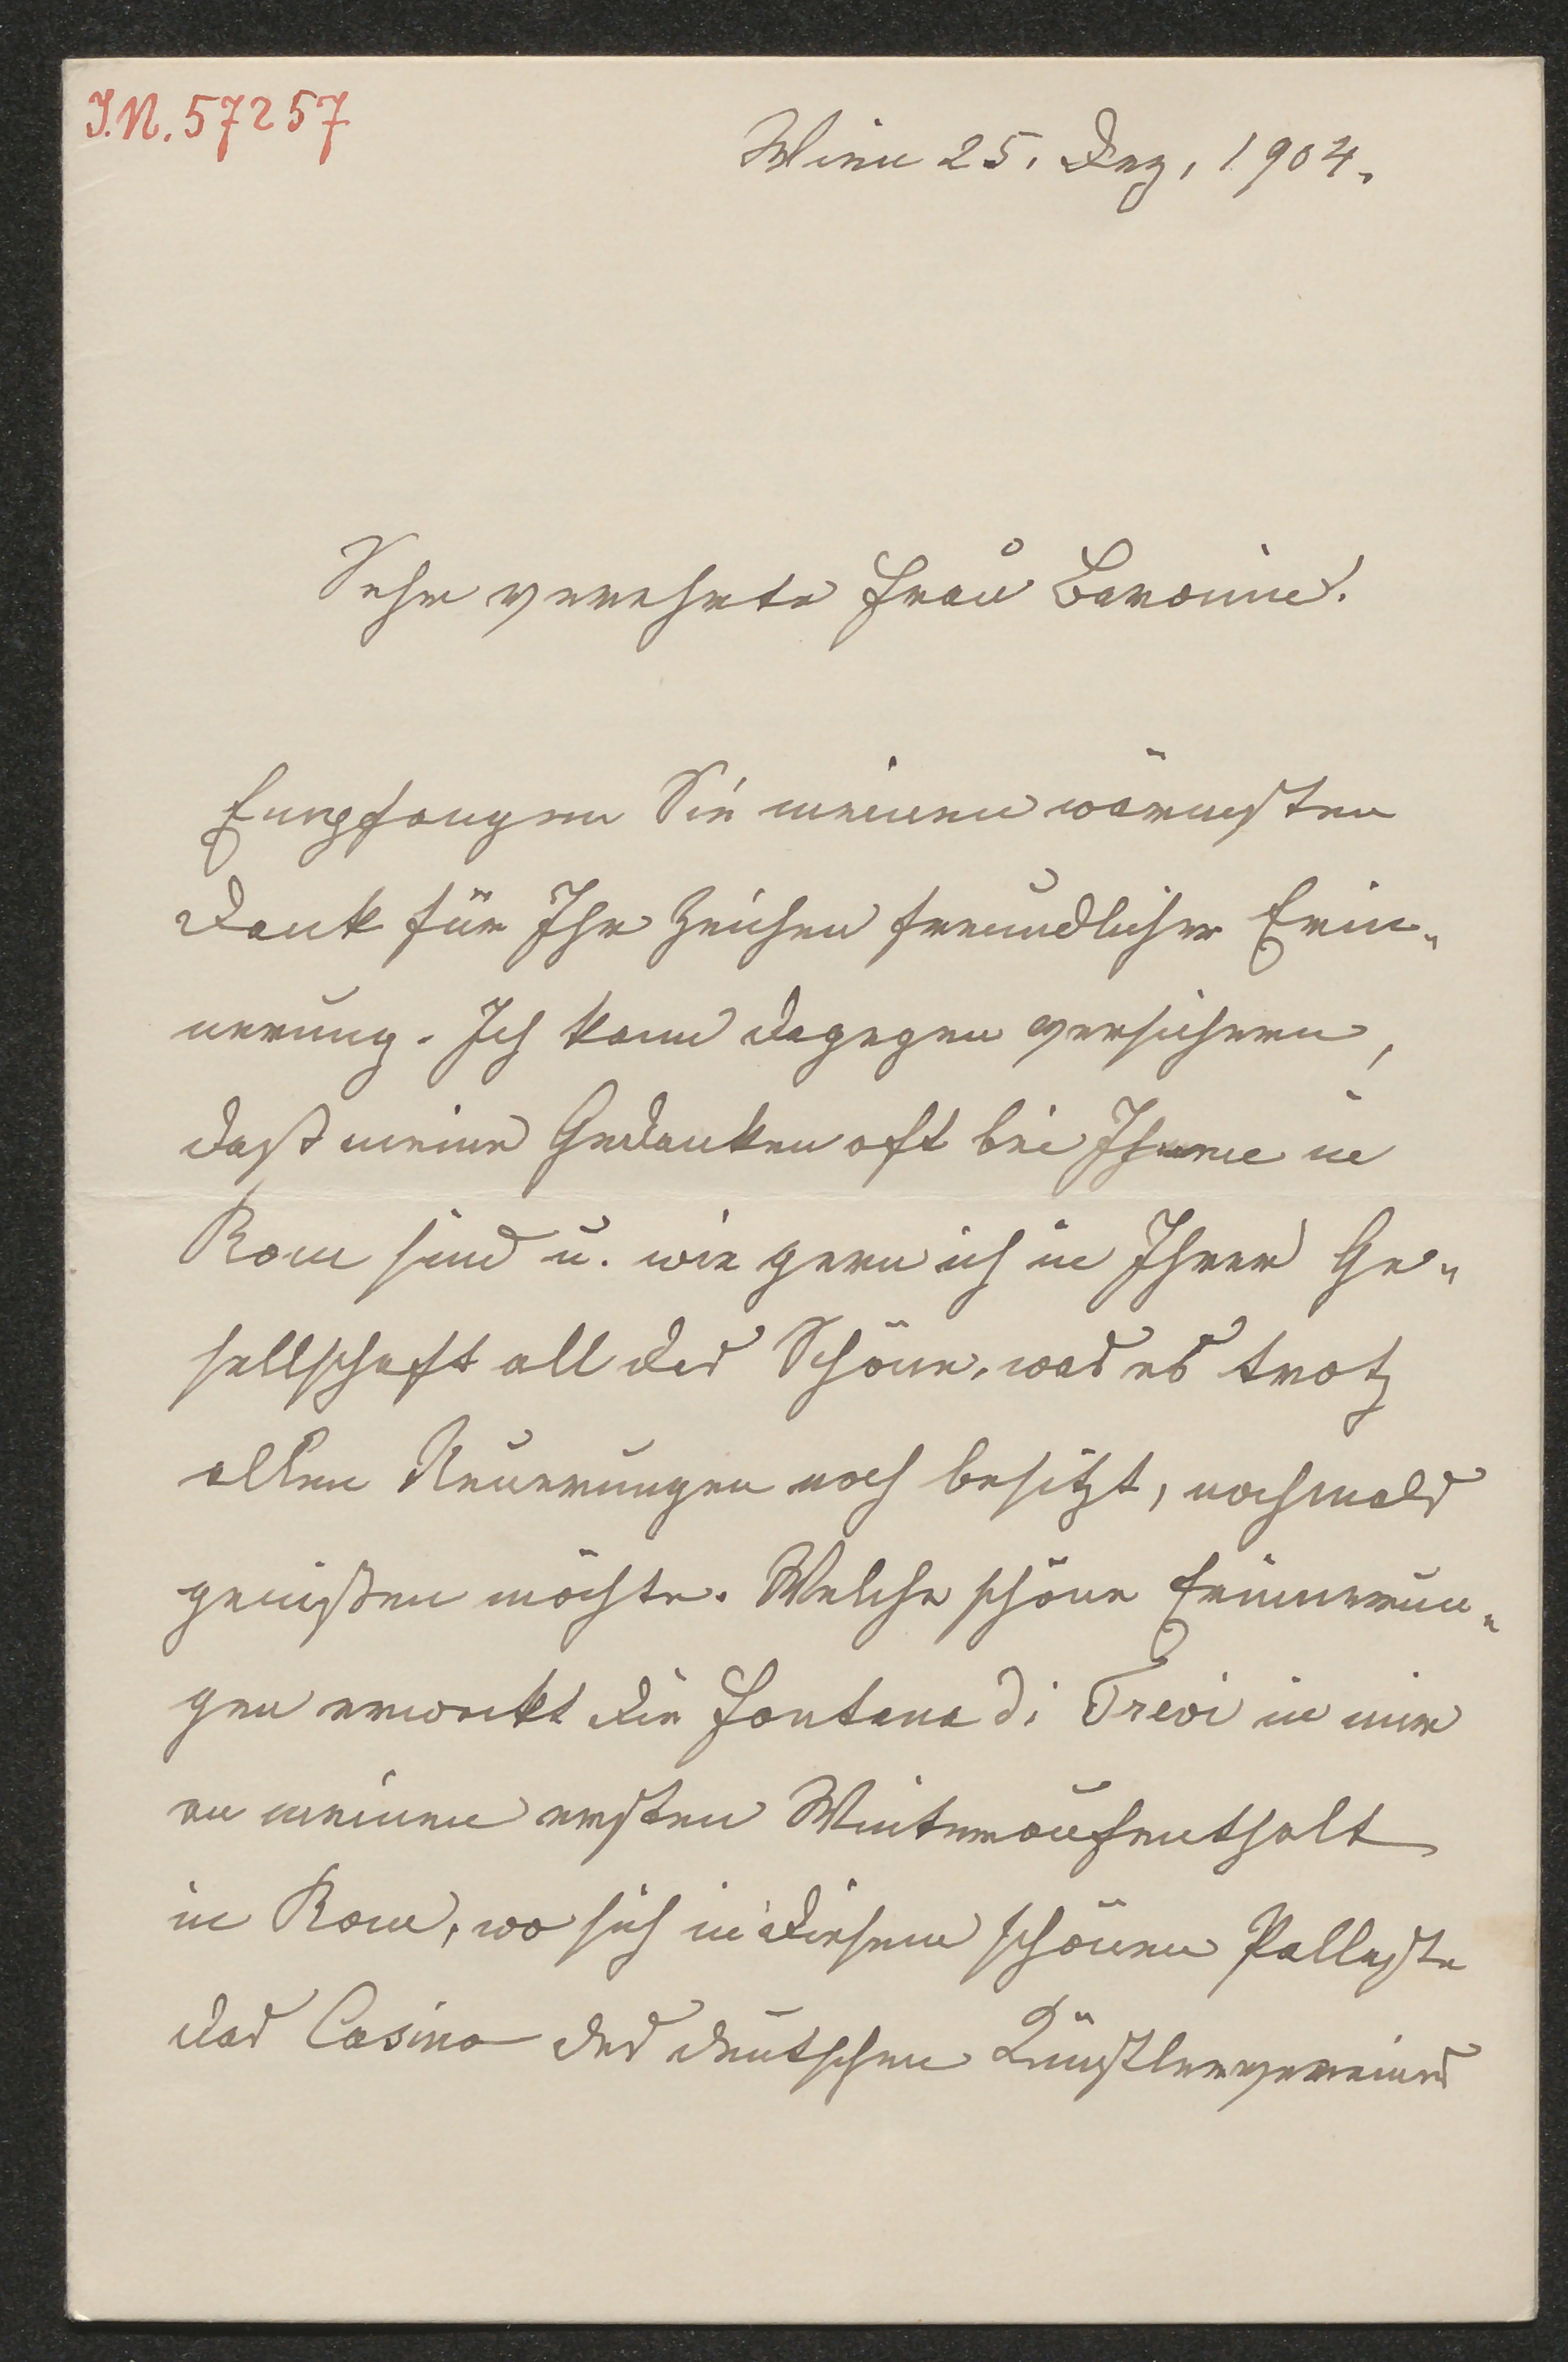 I.N. 57257
Wien 25. Dez. 1904.
Sehr verehrte Frau Baronin!
Empfangen Sie meinen wärmsten
Dank für Ihr Zeichen freundlicher Erin-
nerung. Ich kann dagegen versichern,
daß meine Gedanken oft bei Ihnen in
Rom sind u. wie gern ich in Ihrer Ge-
sellschaft all das Schöne, was es trotz
allen Neuerungen noch besitzt, nochmals
genießen möchte. Welche schöne Erinnerun-
gen erweckt die Fontana di Trevi in mir
an meinen ersten Winteraufenthalt
in Rom, wo sich in diesem schönen Pallaste
das Casino des deutschen Künstlervereines